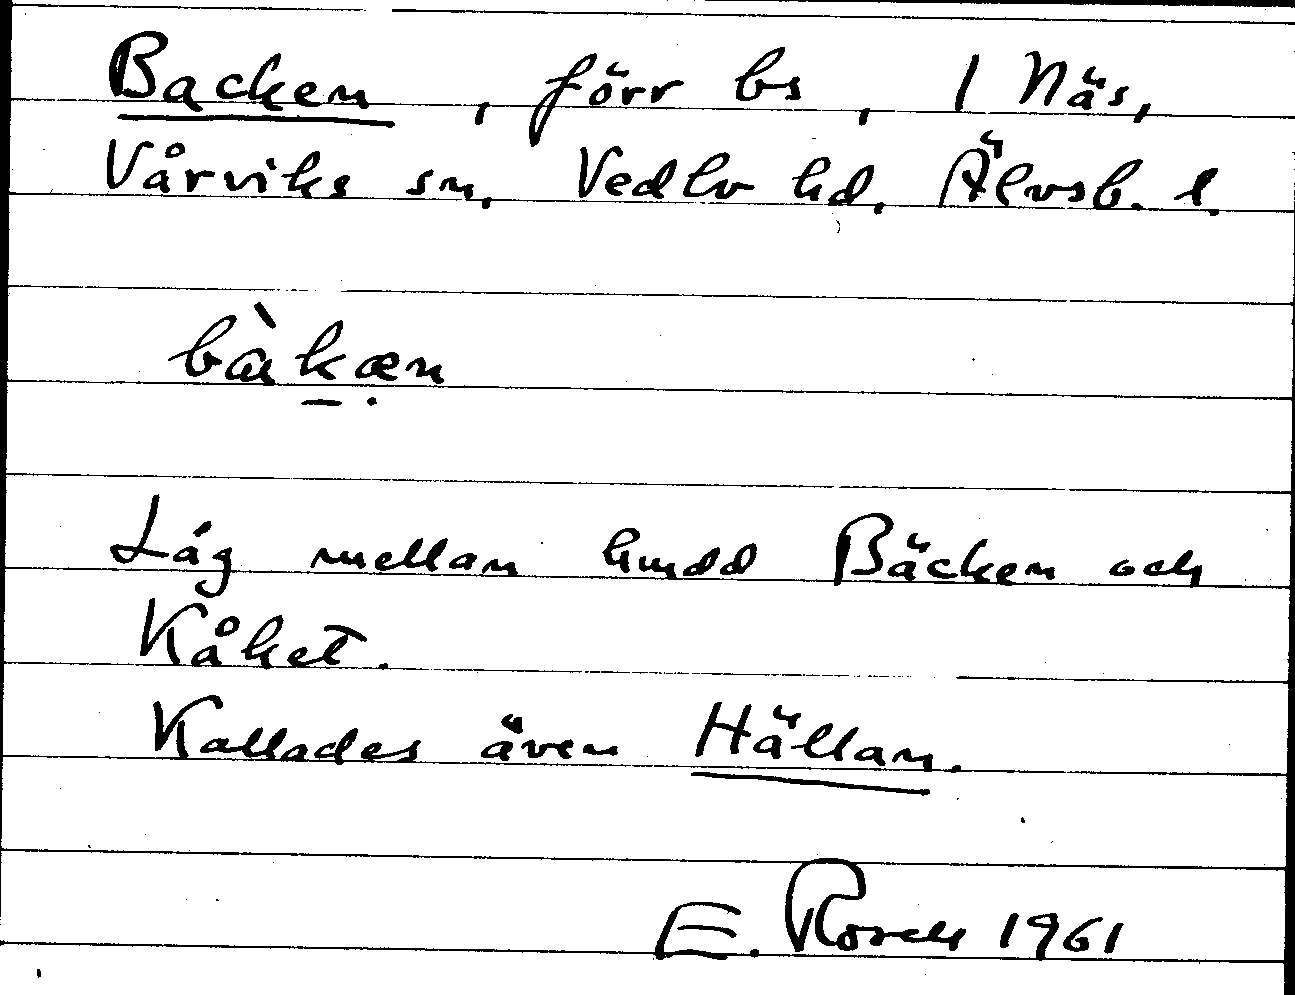 Backen, förr bs, 1 Näs,
Vårviks sn, Vedbo hd, Älvsb. l.
bàkæn
Låg mellan hmdd Bäcken och
Kåket.
Kallades även Hällan.
E. 1961